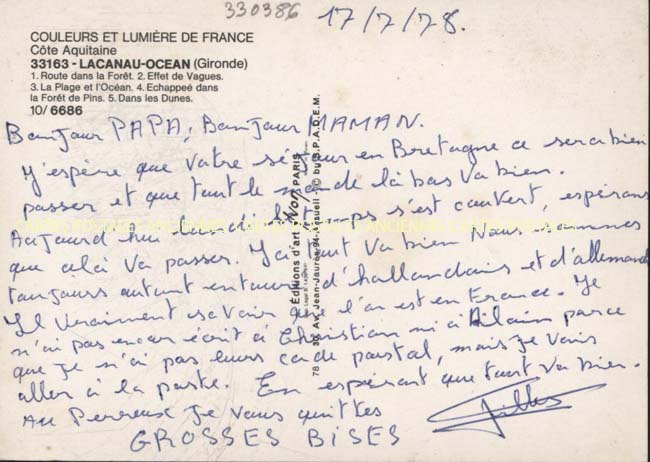 330386
17/7/78.
COULEURS ET LUMIÈRE DE FRANCE
Côte Aquitaine
33163 - LACANAU-OCEAN (Gironde)
1. Route dans la Forêt. 2. Effet de Vagues.
3. La Plage et l'Océan. 4. Echappée dans
la Forêt de Pins. 5. Dans les Dunes.
10/ 6686
Bonjour PAPA, Bonjour MAMAN.
J'espère que votre séjour en Bretagne ce sera bien
passer et que tout le monde là bas va bien.
Aujourd hui Lundi le temps s'est couvert, espérons
que celà va passer. Ici tout va bien Nous sommes
toujours autant entouré d'hollandais et d'allemands
Il vraiment savoir que l'on est en France. Je
n'ai pas encor écrit à Christian ni à Alain parce
que je n'ai pas leurs code postal, mais je vais
aller à la poste. En espérant que tout va bien.
Au Perreux je vous quittes
Gilles
GROSSES BISES
Editions d'art Yvon, PARIS
78 30, Av. Jean-Jaurès, 94-Arcueil © by S.P.A.D.E.M.